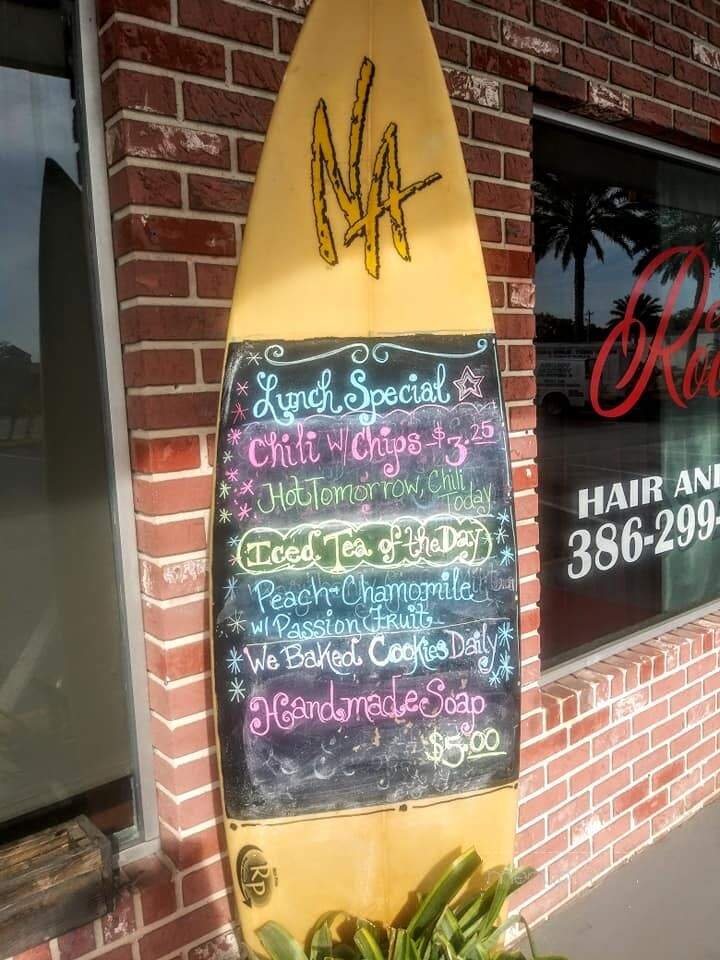 NA
Lunch Special
Chili w/ Chips $3.25
Hot Tomorrow, Chili
Today
Iced Tea of the Day
Peach-Chamomile
w/ Passion Fruit
We Baked Cookies Daily
Handmade Soap
$5.00
RP
HAIR AN
386-299-